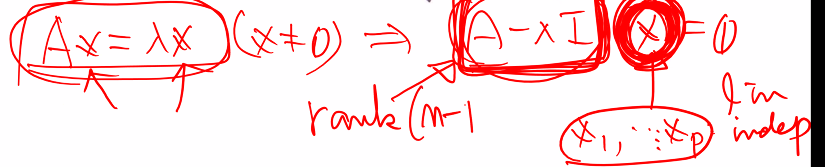 Ax = λx (x≠0) ⇒ A-λI x = 0
rank(n-1
x₁, ...x_p
lin
indep